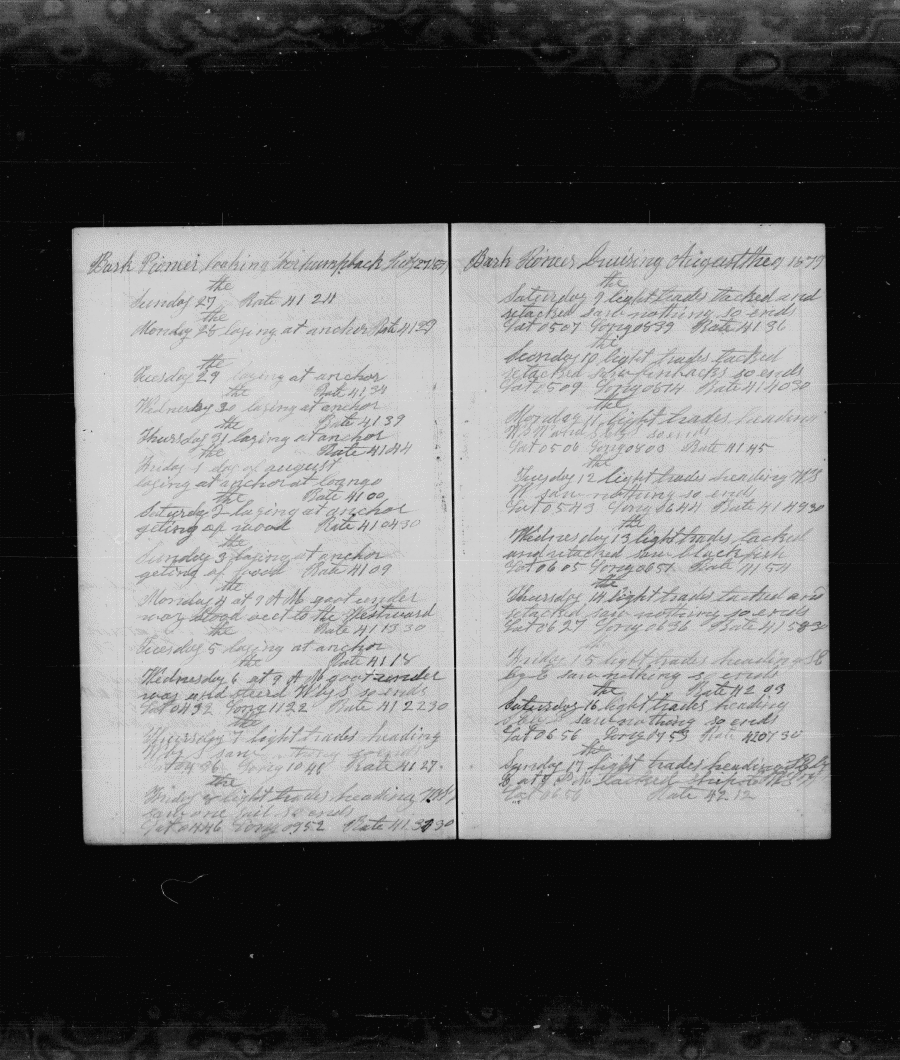 Bark Pioneer looking for humpback July 27 187
the
Sunday 27 Rate 41 24
the
Monday 28 laying at anchor Rate 41 29
the
Tuesday 29 laying at anchor
the Rate 41 34
Wednesday 30 laying at anchor
the Rate 41 39
Thursday 31 laying at anchor
Rate 41 44
Friday 1 day of august
laying at anchor at loango
the Rate 41 00
Saturday 2 laying at anchor
geting of wood Rate 41 04 30
the
Sunday 3 laying at anchor
geting of food Rate 41 09
the
Monday 4 at 9 A M goot under
way stood out to the Westward
the Rate 41 13 30
Tuesday 5 laying at anchor
the Rate 41 18
Wednesday 6 at 9 A M goot under
way and steerd W by S so ends
Lat 04 32 Long 11 22 Rate 41 22 30
the
Thursday 7 light trades heading
W by S saw so ends
Lat 04 36 Long 10 46 Rate 41 27
the
Friday 8 light trades heading W
one sail so ends
Lat 04 46 Long 09 52 Rate 41 31 30
Bark Pioneer Cruising August the 9 1879
the
Saturday 9 light trades tacked and
retacked saw nothing so ends
Lat 05 07 Long 08 39 Rate 41 36
the
Sunday 10 light trades tacked
retacked saw finbacks so ends
Lat 05 09 Long 06 14 Rate 41 40 30
the
Monday 11 light trades heading
so ends
Lat 05 06 Long 08 03 Rate 41 45
the
Tuesday 12 light trades heading W S
W saw nothing so ends
Lat 05 43 Long 06 44 Rate 41 49 30
the
Wednesday 13 light trades tacked
and retacked saw blackfish
Lat 06 05 Long 06 51 Rate 41 54
the
Thursday 14 light trades tacked and
retacked saw nothing so ends
Lat 06 27 Long 06 36 Rate 41 58 3
the
Friday 15 light trades heading S E
by E saw nothing so ends
the Rate 42 03
Saturday 16 light trades heading
saw nothing so ends
Lat 06 56 Long 07 53 Rate 42 07 30
the
Sunday 17 light trades heading S E by
E at P M tacked ship W S W
Lat 06 56 Rate 42 12